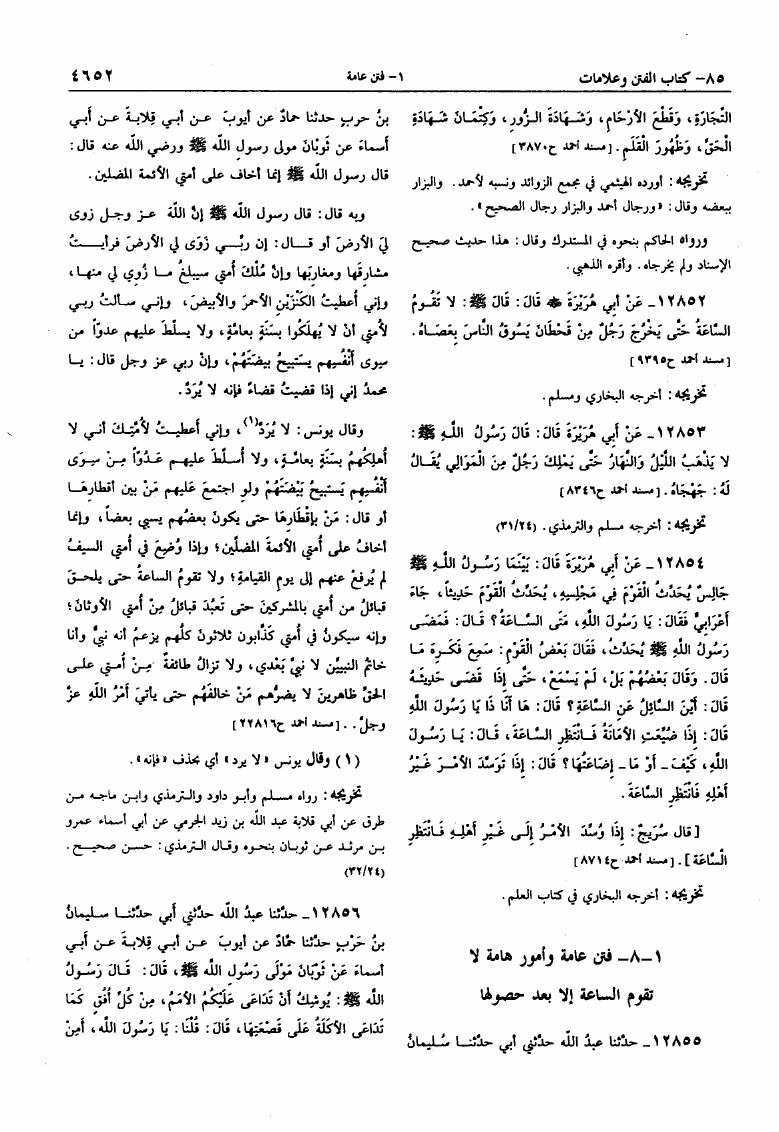 ٨٥- كتاب الفتن وعلامات
١- فتن عامة
٤٦٥٢
التِّجَارَةِ، وَقَطْعَ الأَرْحَامِ، وَشَهَادَةَ الزُّورِ، وَكِتْمَانَ شَهَادَةِ
الْحَقِّ، وَظُهُورَ الْقَلَمِ. [مسند أحمد ح٣٨٧٠]
تخريجه: أورده الهيثمي في مجمع الزوائد ونسبه لأحمد. والبزار
ببعضه وقال: «ورجال أحمد والبزار رجال الصحيح».
ورواه الحاكم بنحوه في المستدرك وقال: هذا حديث صحيح
الإسناد ولم يخرجاه. وأقره الذهبي.
١٢٨٥٢- عَنْ أَبِي هُرَيْرَةَ ﷺ قَالَ: قَالَ ﷺ: لا تَقُومُ
السَّاعَةُ حَتَّى يَخْرُجَ رَجُلٌ مِنْ قَحْطَانَ يَسُوقُ النَّاسَ بِعَصَاهُ.
[مسند أحمد ح٩٣٩٥]
تخريجه: أخرجه البخاري ومسلم.
١٢٨٥٣- عَنْ أَبِي هُرَيْرَةَ قَالَ: قَالَ رَسُولُ اللهِ ﷺ:
لا يَذْهَبُ اللَّيْلُ وَالنَّهَارُ حَتَّى يَمْلِكَ رَجُلٌ مِنَ الْمَوَالِي يُقَالُ
لَهُ: جَهْجَاهُ. [مسند أحمد ح٨٣٤٦]
تخريجه: أخرجه مسلم والترمذي. (٣١/٢٤)
١٢٨٥٤- عَنْ أَبِي هُرَيْرَةَ قَالَ: بَيْنَمَا رَسُولُ اللهِ ﷺ
جَالِسٌ يُحَدِّثُ الْقَوْمَ فِي مَجْلِسِهِ، يُحَدِّثُ الْقَوْمَ حَدِيثاً، جَاءَ
أَعْرَابِيٌّ فَقَالَ: يَا رَسُولَ اللهِ، مَتَى السَّاعَةُ؟ قَالَ: فَمَضَى
رَسُولُ اللهِ ﷺ يُحَدِّثُ، فَقَالَ بَعْضُ الْقَوْمِ: سَمِعَ فَكَرِهَ مَا
قَالَ. وَقَالَ بَعْضُهُمْ بَلْ، لَمْ يَسْمَعْ، حَتَّى إِذَا قَضَى حَدِيثَهُ
قَالَ: أَيْنَ السَّائِلُ عَنِ السَّاعَةِ؟ قَالَ: هَا أَنَا ذَا يَا رَسُولَ اللهِ
قَالَ: إِذَا ضُيِّعَتِ الأَمَانَةُ فَانْتَظِرِ السَّاعَةَ، قَالَ: يَا رَسُولَ
اللهِ، كَيْفَ- أَوْ مَا- إِضَاعَتُهَا؟ قَالَ: إِذَا تَوَسَّدَ الأَمْرَ غَيْرُ
أَهْلِهِ فَانْتَظِرِ السَّاعَةَ.
[قال سُرَيجٌ: إِذَا وُسِّدَ الأَمْرُ إِلَى غَيْرِ أَهْلِهِ فَانْتَظِرِ
السَّاعَةَ]. [مسند أحمد ح٨٧١٤]
تخريجه: أخرجه البخاري في كتاب العلم.
١-٨- فتن عامة وأمور هامة لا
تقوم الساعة إلا بعد حصولها
١٢٨٥٥- حدثنا عبدُ الله حدَّثني أبي حدثنا سُليمانُ
بنُ حربٍ حدثنا حمادٌ عن أيوبَ عن أبي قِلابة عن أبي
أسماءَ عن ثوبَان مولى رسول الله ﷺ ورضي الله عنه قال:
قال رسول الله ﷺ إنما أخاف على أمتي الأئمة المضلين.
وبه قال: قال رسول الله ﷺ إنَّ اللهَ عز وجل زوى
ليَ الأرضَ أو قال: إن ربِّي زَوَى لي الأرضَ فرأيتُ
مشارقَها ومغاربَها وإنَّ مُلْكَ أمتي سيبلغُ ما زُوِيَ لي منها،
وإني أُعطيتُ الكَنْزَينِ الأحمرَ والأبيضَ، وإني سألتُ ربي
لأمتي أنْ لا يُهلَكوا بسَنَةٍ بعامَّةٍ، ولا يسلِّطَ عليهم عدوّاً من
سِوى أنْفُسِهم يستبيحُ بيضتَهُمْ، وإنَّ ربي عز وجل قال: يا
محمدُ إني إذا قضيتُ قضاءً فإنه لا يُرَدُّ.
وقال يونس: لا يُرَدُّ(١)، وإني أَعطيتُ لأُمَّتِكَ أني لا
أُهلِكُهُمْ بسَنَةٍ بعامَّةٍ، ولا أُسلِّطَ عليهم عَدُوّاً مِنْ سِوَى
أنْفُسِهم يَستبيحُ بَيْضَتَهُمْ ولو اجتمعَ عَليهم مَنْ بين أقطارِهَا
أو قال: مَنْ بأقْطَارِها حتى يكونَ بعضُهم يسبي بعضاً، وإنما
أخافُ على أُمتي الأئمةَ المضلِّين؛ وإذا وُضِعَ في أمتي السيفُ
لم يُرفعْ عنهم إلى يومِ القيامةِ؛ ولا تقومُ الساعةُ حتى يلحقَ
قبائلُ من أمتي بالمشركينَ حتى تعبُدَ قبائلُ مِنْ أمتي الأوثانَ؛
وإنه سيكونُ في أمتي كذَّابون ثلاثونَ كلُّهم يزعمُ أنه نبيٌّ وأنا
خاتمُ النبيِّينَ لا نبيَّ بَعْدي، ولا تزالُ طائفةٌ مِنْ أُمتي على
الحقِّ ظاهرينَ لا يضرُّهم مَنْ خالفَهُم حتى يأتيَ أَمْرُ اللهِ عزَّ
وجلَّ.. [مسند أحمد ح٢٢٨١٦]
(١) وقال يونس «لا يرد» أي بحذف «فإنه».
تخريجه: رواه مسلم وأبو داود والترمذي وابن ماجه من
طرق عن أبي قلابة عبد الله بن زيد الجرمي عن أبي أسماء عمرو
بن مرثد عن ثوبان بنحوه وقال الترمذي: حسن صحيح.
(٣٢/٢٤)
١٢٨٥٦- حدَّثنا عبدُ الله حدَّثني أبي حدَّثنا سليمانُ
بنُ حَرْبٍ حدَّثنا حمَّادٌ عن أيوبَ عن أبي قِلابةَ عن أبي
أسماءَ عَنْ ثَوْبَانَ مَوْلَى رَسُولِ اللهِ ﷺ، قَالَ: قَالَ رَسُولُ
اللهِ ﷺ: يُوشِكُ أَنْ تَدَاعَى عَلَيْكُمُ الأُمَمُ، مِنْ كُلِّ أُفُقٍ كَمَا
تَدَاعَى الأَكَلَةُ عَلَى قَصْعَتِهَا، قَالَ: قُلْنَا: يَا رَسُولَ اللهِ، أَمِنْ